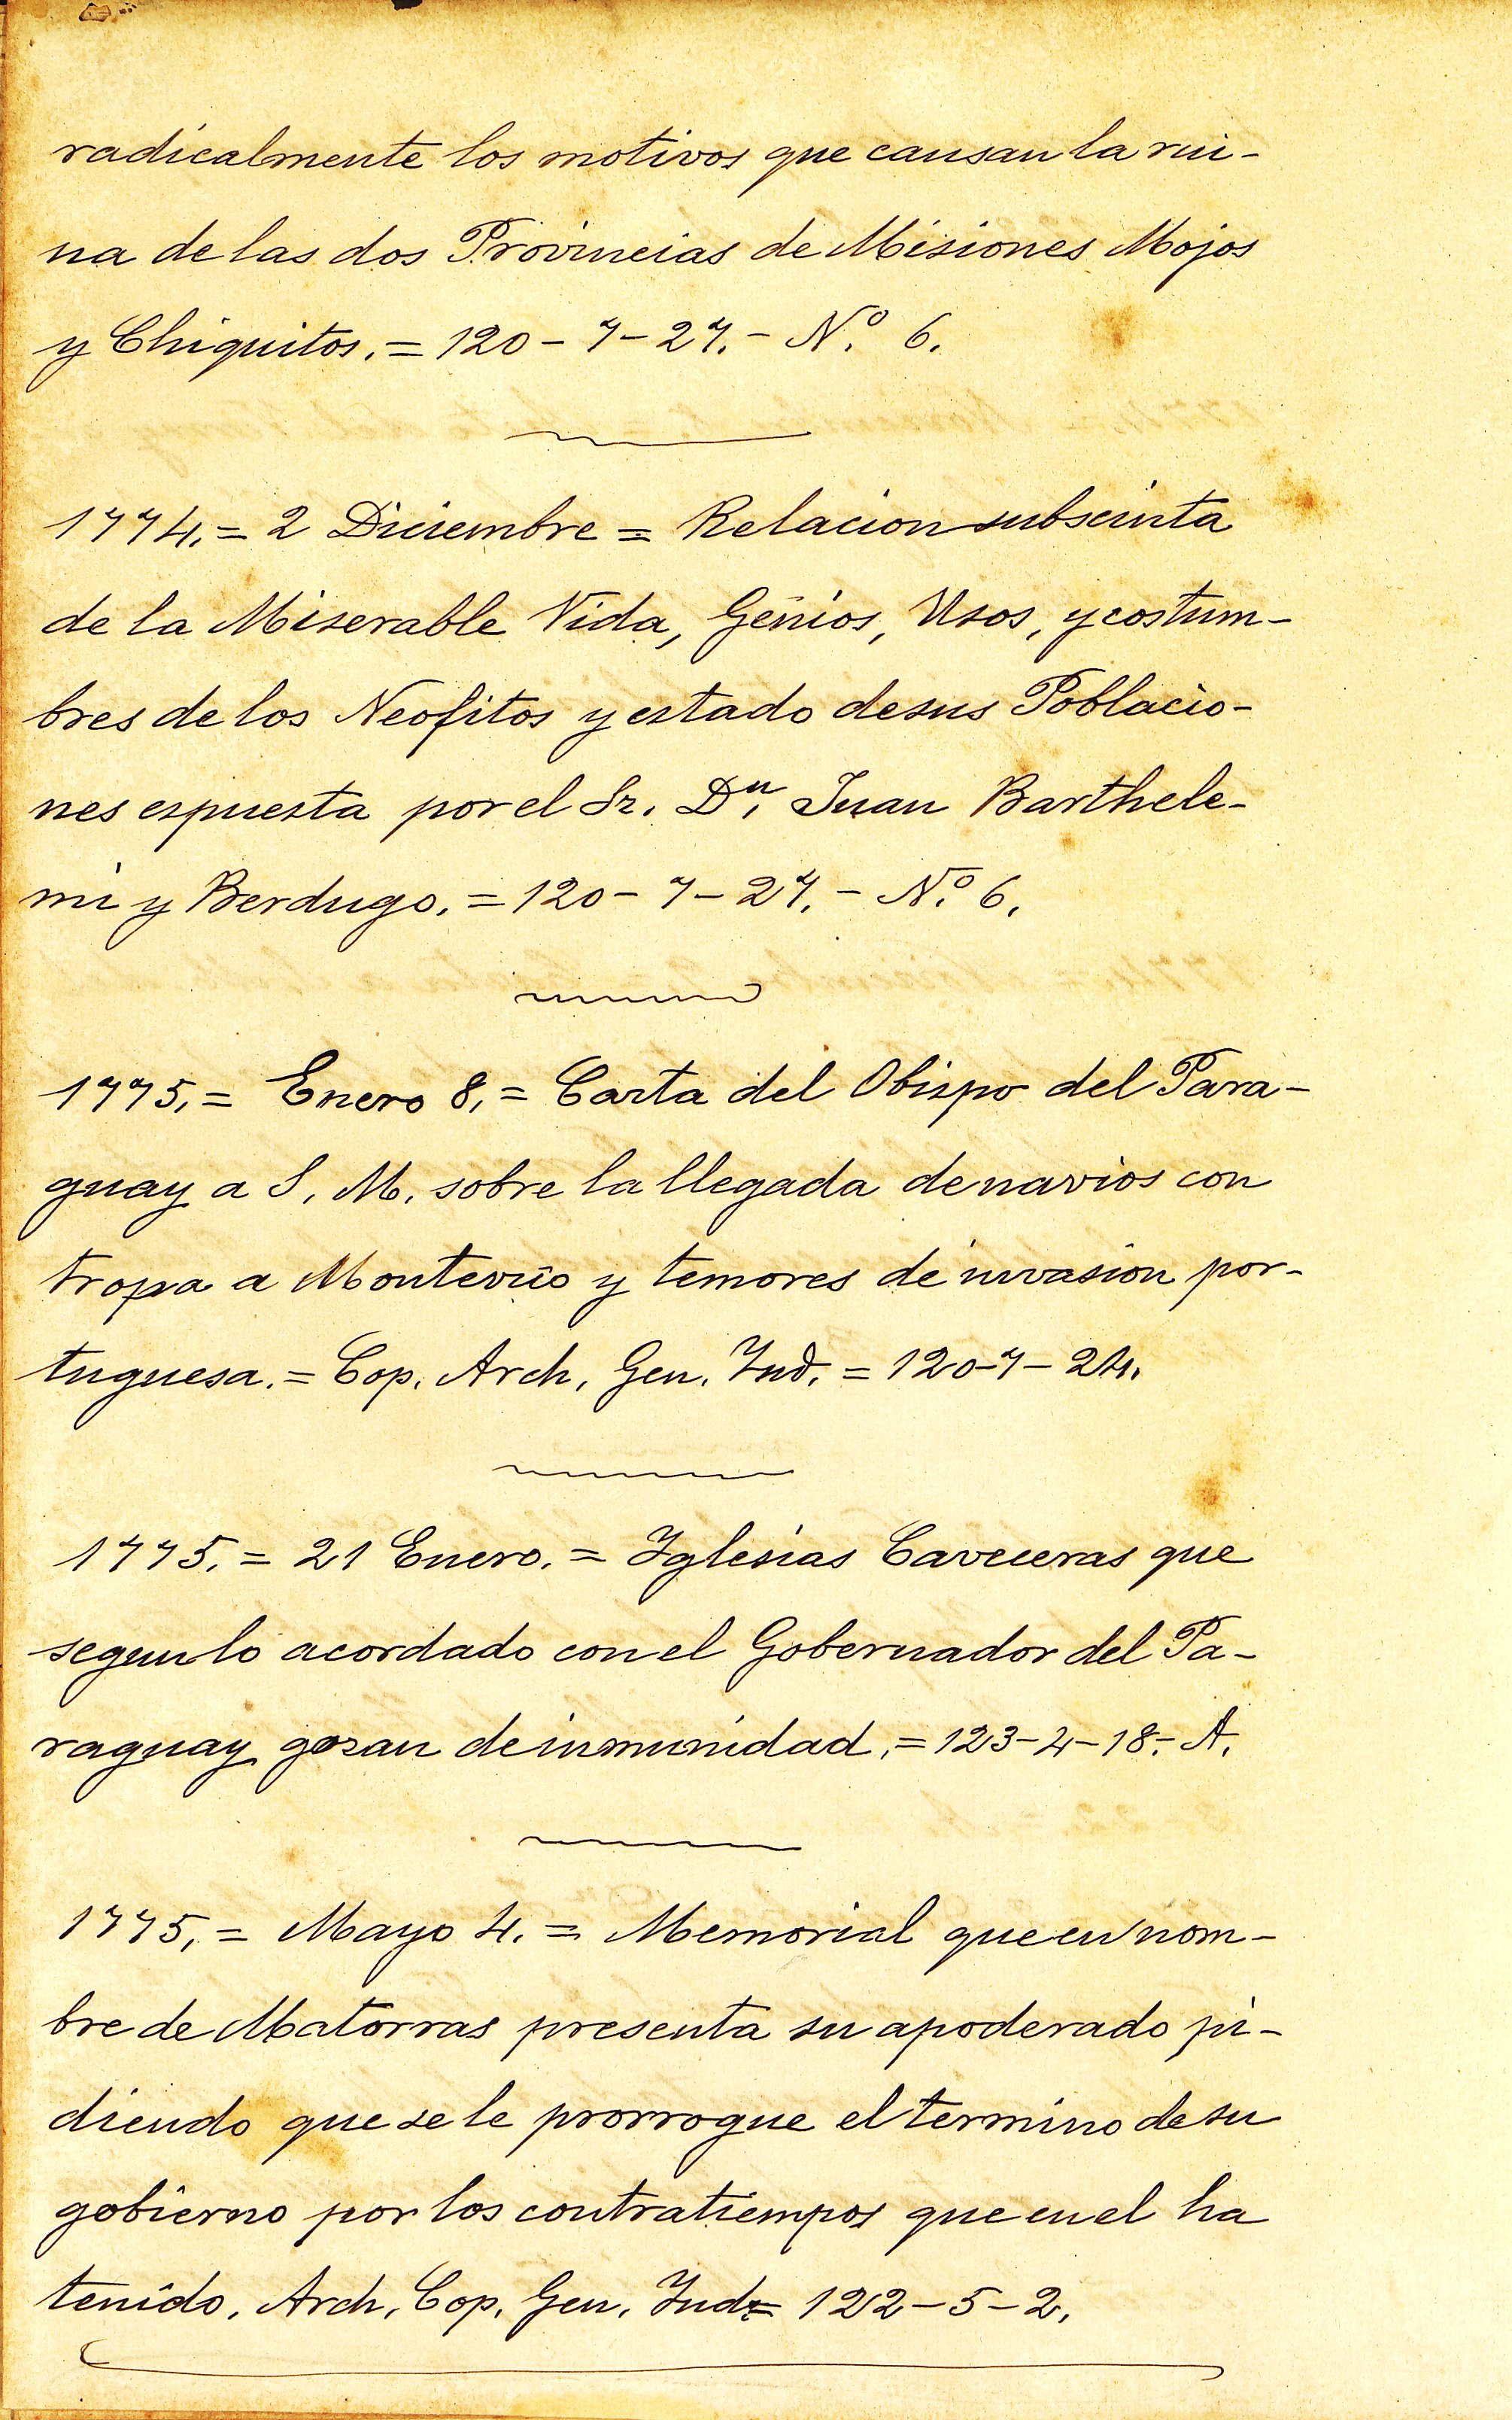 radicalmente los motivos que causan la rui-
na de las dos Provincias de Misiones Mojos
y Chiquitos. = 120 - 7 - 27. - N.º 6.
1774. = 2 Diciembre = Relacion subscinta
de la Miserable Vida, Génios, Usos, y costum-
bres de los Neofitos y estado de sus Poblacio-
nes espuesta por el Sr. Dn. Juan Barthele-
mi y Berdugo. = 120 - 7 - 27. - N.º 6.
1775. = Enero 8. = Carta del Obispo del Para-
guay a S. M. sobre la llegada de navios con
tropa a Montevío y temores de invasion por-
tuguesa. = Cop. Arch. Gen. Ind. = 120-7-24.
1775. = 21 Enero. = Iglesias Caveceras que
segun lo acordado con el Gobernador del Pa-
raguay gozan de inmunidad. = 123-4-18.- A.
1775. = Mayo 4. = Memorial que en nom-
bre de Matorras presenta su apoderado pi-
diendo que se le prorrogue el termino de su
gobierno por los contratiempos que en el ha
tenido. Arch. Cop. Gen. Ind. = 122-5-2.